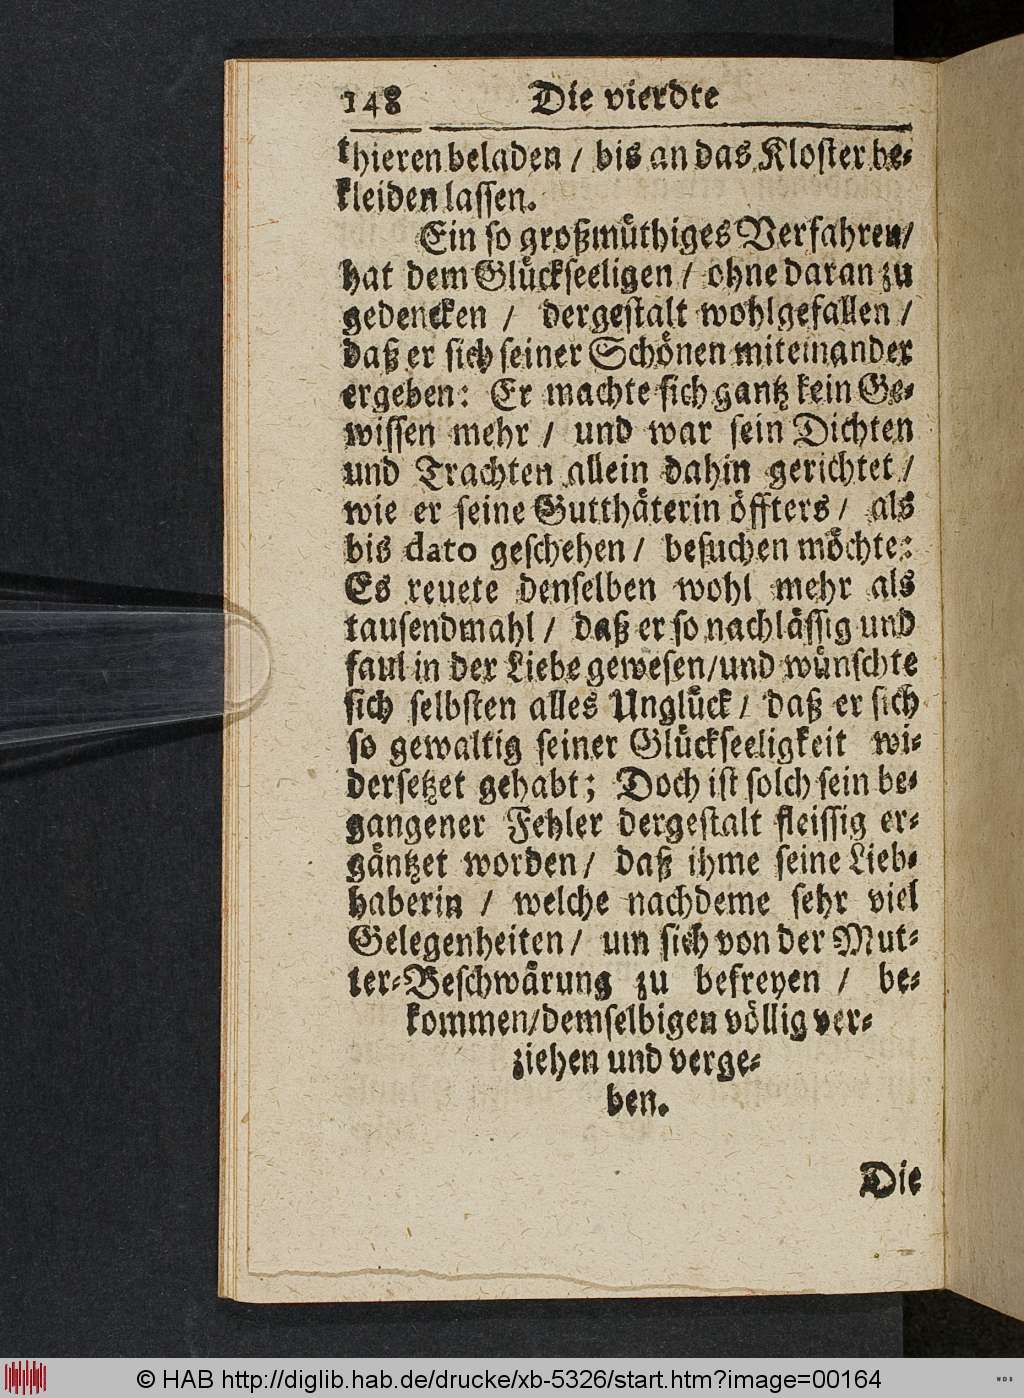 148 Die vierdte
thieren beladen / bis an das Kloster be-
kleiden lassen.
Ein so großmüthiges Verfahren/
hat dem Glückseeligen / ohne daran zu
gedencken / dergestalt wohlgefallen /
daß er sich seiner Schönen miteinander
ergeben: Er machte sich gantz kein Ge-
wissen mehr / und war sein Dichten
und Trachten allein dahin gerichtet /
wie er seine Gutthäterin öffters / als
bis dato geschehen / besuchen möchte:
Es reuete denselben wohl mehr als
tausendmahl / daß er so nachlässig und
faul in der Liebe gewesen/und wünschte
sich selbsten alles Unglück / daß er sich
so gewaltig seiner Glückseeligkeit wi-
dersetzet gehabt; Doch ist solch sein be-
gangener Fehler dergestalt fleissig er-
gäntzet worden / daß ihme seine Lieb-
haberin / welche nachdeme sehr viel
Gelegenheiten / um sich von der Mut-
ter-Beschwärung zu befreyen / be-
kommen/demselbigen völlig ver-
ziehen und verge-
ben.
Die
© HAB http://diglib.hab.de/drucke/xb-5326/start.htm?image=00164